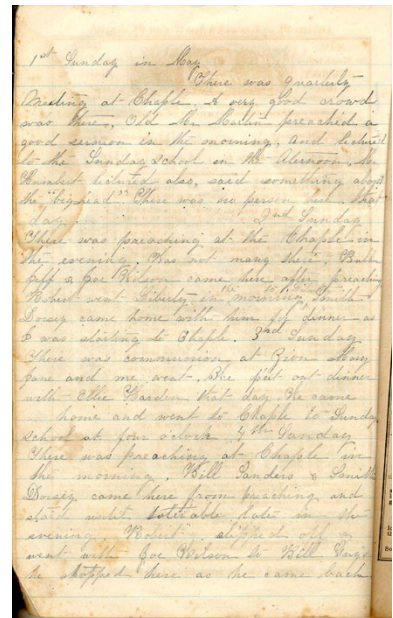 1st Sunday in May
There was quarterly
Meeting at Chaple, A very good crowd
was there, Old Mr. Martin preached a
good sermon in the morning, and lectured
to the Sunday School in the afternoon,
lectured also, said something about
the There was no person here that
day 2nd Sunday
There was preaching at the Chaple in
the evening. Was not many there,
& Joe Wilson came here after preaching
Robert went Liberty in the morning, Smith
Dorsey came home with him for dinner as
I was starting to Chaple. 3rd Sunday
There was communion at Zion
and me went. We put out dinner
with Ellie Harden that day. We came
home and went to Chaple to Sunday
school at four o'clock 4th Sunday
There was preaching at Chaple in
the morning Bill Sanders & Smith
Dorsey came here from preaching and
staid until tolerable late in the
evening. Robert sliped off &
went with Joe Wilson to Bill
he stopped here as he came back